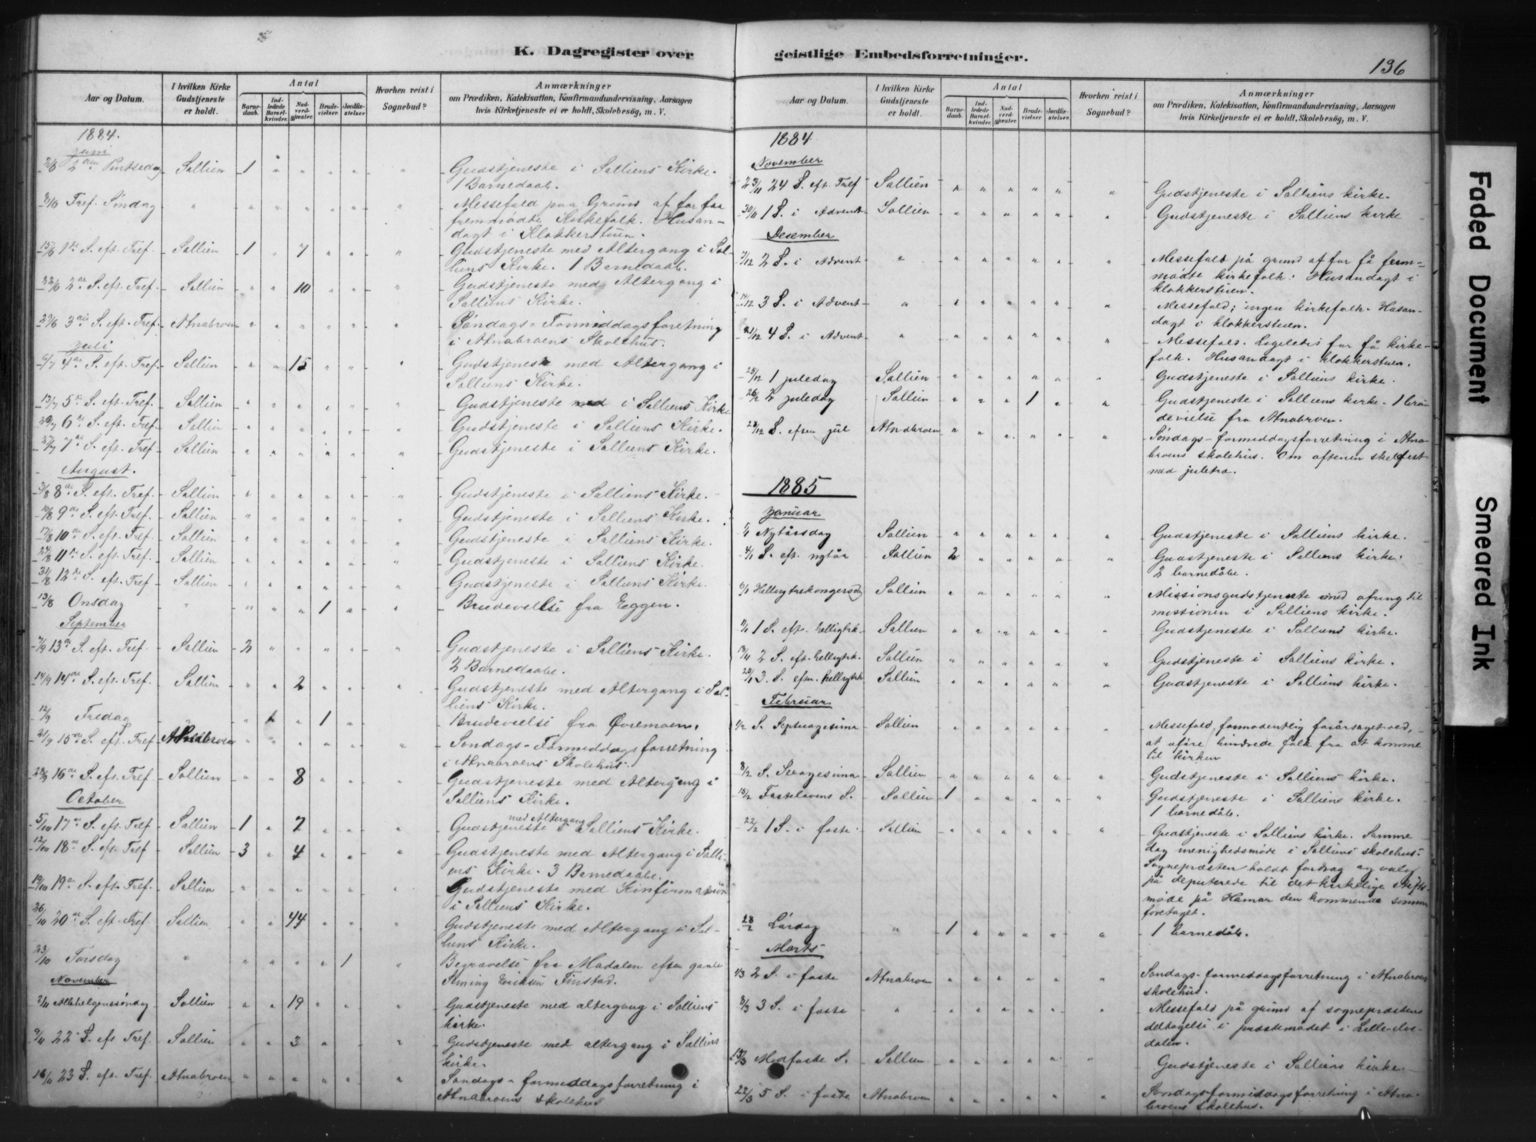 K. Dagregister over
geistlige Embedsforretninger.
136
Aar og Datum.
I hvilken Kirke Gudstjeneste er holdt.
Antal
Barnedaab.
Nadverdgjæster
Brudevielser
Hvorhen reist i Sognebud?
Anmærkninger
om Prædiken, Katekisation, Konfirmandundervisning, Aarsagen
hvis Kirketjeneste ei er holdt, Skolebesøg, m. V.
1884.
Juni
2/6 2den Pintsedag Sollien 1 Gudstjeneste i Solliens Kirke.
1 Barnedaab.
Tref. Søndag Messefald paa Grund af for faa
fremmødte Kirkefolk. Husan-
dagt i Klokkerstuen.
15/6 1ste S. eft. Tref. Sollien 1 7 Gudstjeneste med Altergang i Sol-
liens Kirke. 1 Barnedaab.
22/6 2den S. eft. Tref. Sollien 10 Gudstjeneste med Altergang i
Solliens Kirke.
29/6 3die S. eft. Tref. Atnabroen Søndags-Formiddagsforretning
i Atnabroens Skolehus.
Juli
6/7 4de S. eft. Tref. Sollien 15 Gudstjeneste med Altergang i
Solliens Kirke.
13/7 5te S. eft. Tref. Sollien Gudstjeneste i Solliens Kirke
20/7 6te S. eft. Tref. Sollien Gudstjeneste i Solliens Kirke.
27/7 7de S. eft. Tref. Sollien Gudstjeneste i Solliens Kirke.
August.
3/8 8de S. eft. Tref. Sollien Gudstjeneste i Solliens Kirke.
10/8 9de S. eft. Tref. Sollien Gudstjeneste i Solliens Kirke.
17/8 10de S. eft. Tref. Sollien Gudstjeneste i Solliens Kirke.
24/8 11te S. eft. Tref. Sollien Gudstjeneste i Solliens Kirke.
31/8 12te S. eft. Tref. Sollien Gudstjeneste i Solliens Kirke
13/8 Onsdag 1 Brudevielse fra Eggen.
September
7/9 13de S. eft. Tref. Sollien 2 Gudstjeneste i Solliens Kirke.
2 Barnedaabe.
14/9 14de S. eft. Tref. Sollien 2 Gudstjeneste med Altergang i Sol-
liens Kirke.
12/9 Fredag 1 Brudevielse fra Øvremoen.
21/9 15de S. eft. Tref. Atnabroen Søndags-Formiddagsforretning
i Atnabroens Skolehus.
28/9 16de S. eft. Tref Sollien 8 Gudstjeneste med Altergang i
Solliens Kirke.
October
5/10 17de S. eft. Tref Sollien 1 7 Gudstjeneste med Altergang i Solliens Kirke.
12/10 18de S. eft. Tref. Sollien 3 4 Gudstjeneste med Altergang i Solli-
ens Kirke. 3 Barnedaabe.
19/10 19de S. eft. Tref. Sollien Gudstjeneste med Konfirmation
i Solliens Kirke.
26/10 20de S. eft. Tref Sollien 44 Gudstjeneste med Altergang i Sol-
liens Kirke.
23/10 Torsdag 1 Begravelse fra Modalen efter gamle
Eriksen Finstad.
November
2/11 Allehelgenssøndag Sollien 19 Gudstjeneste med altergang i Solliens
kirke.
9/11 22 S. eft Tref. Sollien 3 Gudstjeneste med altergang i Solliens
kirke.
16/11 23 S. eft. Tref. Atnabroen Søndags-formiddagsforretning i
Atnabroens skolehus
Aar og Datum.
I hvilken Kirke Gudstjeneste er holdt.
Antal
Barnedaab.
Nadverdgjæster
Brudevielser
Hvorhen reist i Sognebud?
Anmærkninger
om Prædiken, Katekisation, Konfirmandundervisning, Aarsagen
hvis Kirketjeneste ei er holdt, Skolebesøg, m. V.
1884
November
23/11 24 S. eft. Tref Sollien Gudstjeneste i Solliens kirke.
30/11 1 S. i Advent Sollien Gudstjeneste i Solliens kirke
Desember
7/12 2 S. i Advent Messefald på grund af for få frem-
mødte kirkefolk. Husandagt i
klokkerstuen.
14/12 3 S. i Advent Messefald; ingen kirkefolk. Husan-
dagt i klokkerstuen.
21/12 4 S. i Advent Messefald. Ligeledes for få kirke-
folk. Husandagt i klokkerstuen.
25/12 1 juledag Sollien Gudstjeneste i Solliens kirke.
26/12 2 juledag Sollien 1 Gudstjeneste i Solliens kirke. 1 bru-
devielse fra Atnabroen.
28/12 S. eften jul Atnabroen Søndags-formiddagsforretning i Atna-
broens skolehus. Om aftenen skolefest
med juletræ.
1885
Januar
1/1 Nytårsdag Sollien Gudstjeneste i Solliens kirke.
4/1 S. eft. nytår Sollien 2 Gudstjeneste i Solliens kirke.
2 barnedåbe.
6/1 Helligtrekongersdag Sollien Missionsgudstjeneste med ofring til
missionen i Solliens kirke.
11/1 1 S. eft. helligtrk. Sollien Gudstjeneste i Solliens kirke.
18/1 2 S. eft. helligtrk. Sollien Gudstjeneste i Solliens kirke.
25/1 3. S. eften helligtrk Sollien Gudstjeneste i Solliens kirke.
Februar
1/2 S. Septuagesima Sollien Messefald, formodentlig forårsaget ved,
at uføre hindrede folk fra at komme
til kirken
8/2 S. Sexagesima Sollien Gudstjeneste i Solliens kirke.
15/2 Fastelavens S. Sollien 1 Gudstjeneste i Solliens kirke.
1 barnedåb.
22/2 1 S. i faste Sollien Gudstjeneste i Solliens kirke. Samme
dag menighedsmøde i Solliens skolehus.
Sognepræsten holdt foredrag og valg
på deputerede til det kirkelige Stifts-
møde på Hamar den kommende sommer
foretaget.
28/2 Lördag 1 1 barnedåb.
Marts
1/3 2 S. i faste Atnabroen Søndags-formiddagsforretning i Atnabroens
skolehus.
8/3 3 S. i faste Messefald på grund af sognepræstens
deltagelse i præstemødet i Lille-Elve-
dalen.
15/3 Midfaste S. Sollien Gudstjeneste i Solliens kirke
22/3 5 S. i faste Atnabroen Søndagsformiddagsforretning i Atna-
broens skolehus.
Faded Document
Smeared Ink